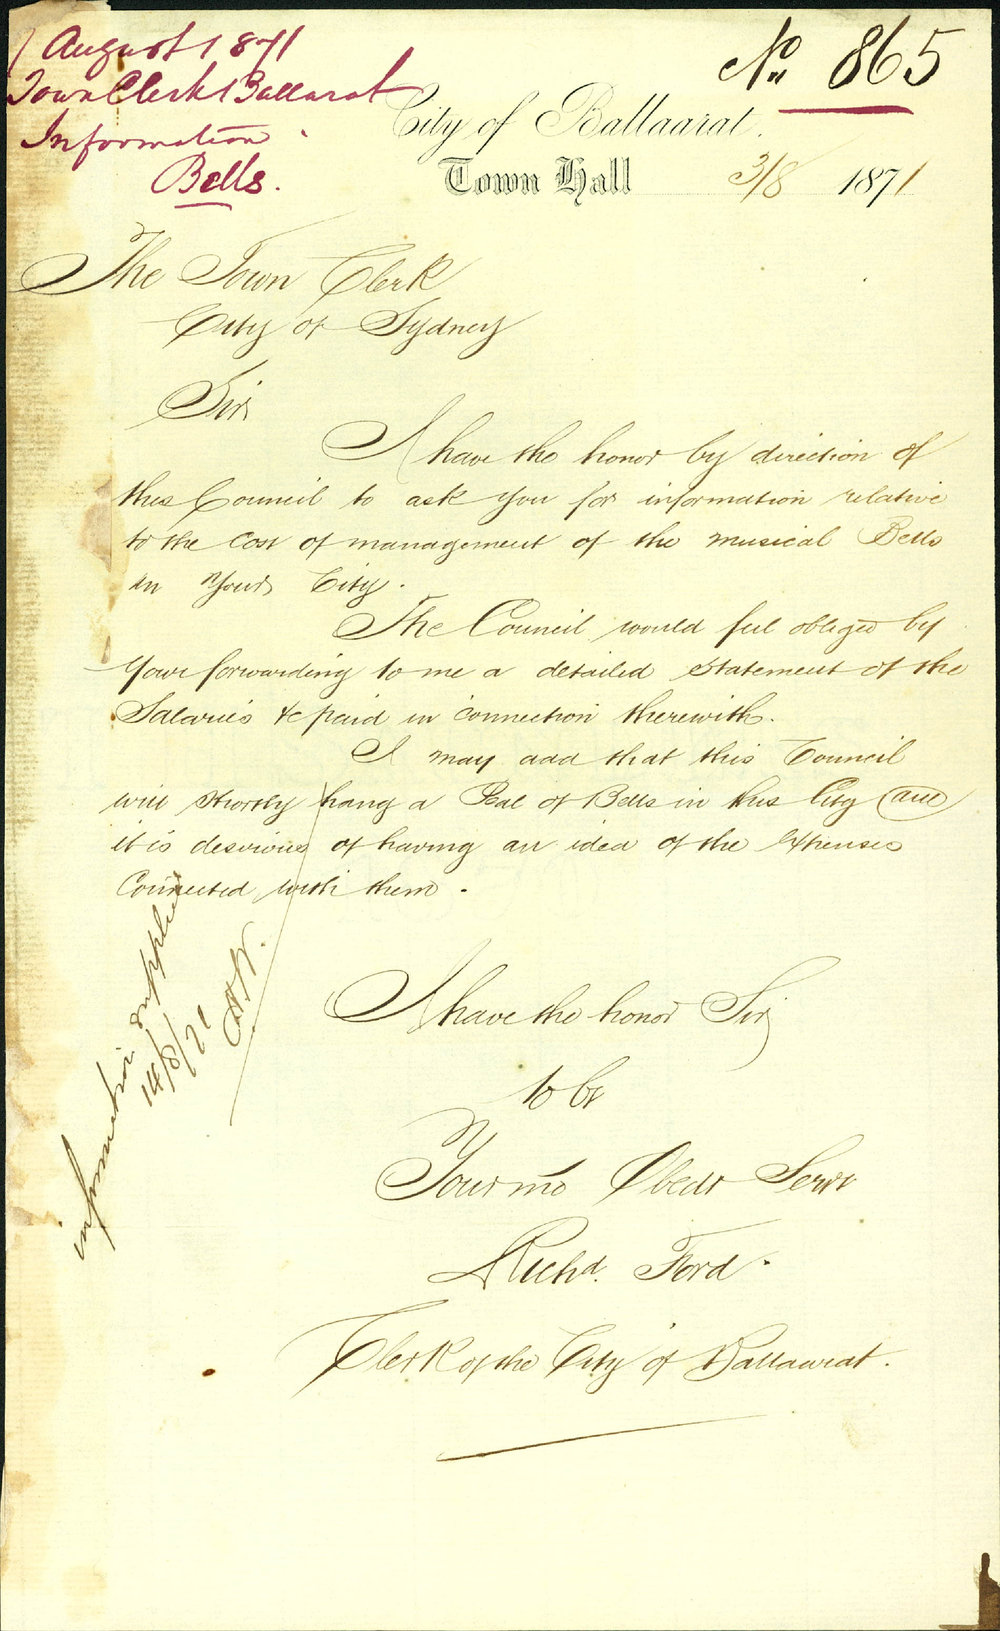 August 1871
Town Clerk Ballarat
Information
Bells.
No. 865
City of Ballaarat.
Town Hall 3/8 1871
The Town Clerk
City of Sydney
Sir
I have the honor by direction of
this Council to ask you for information relative
to the cost of management of the musical Bells
in your City.
The Council would feel obliged by
your forwarding to me a detailed statement of the
Salaries &c paid in connection therewith.
I may add that this Council
will shortly hang a Peal of Bells in this City and
it is desirous of having an idea of the expenses
Connected with them.
information supplied
14/8/71
I have the honor Sir
to be
Your mo Obedt Servt
Richd. Ford.
Clerk of the City of Ballaarat.